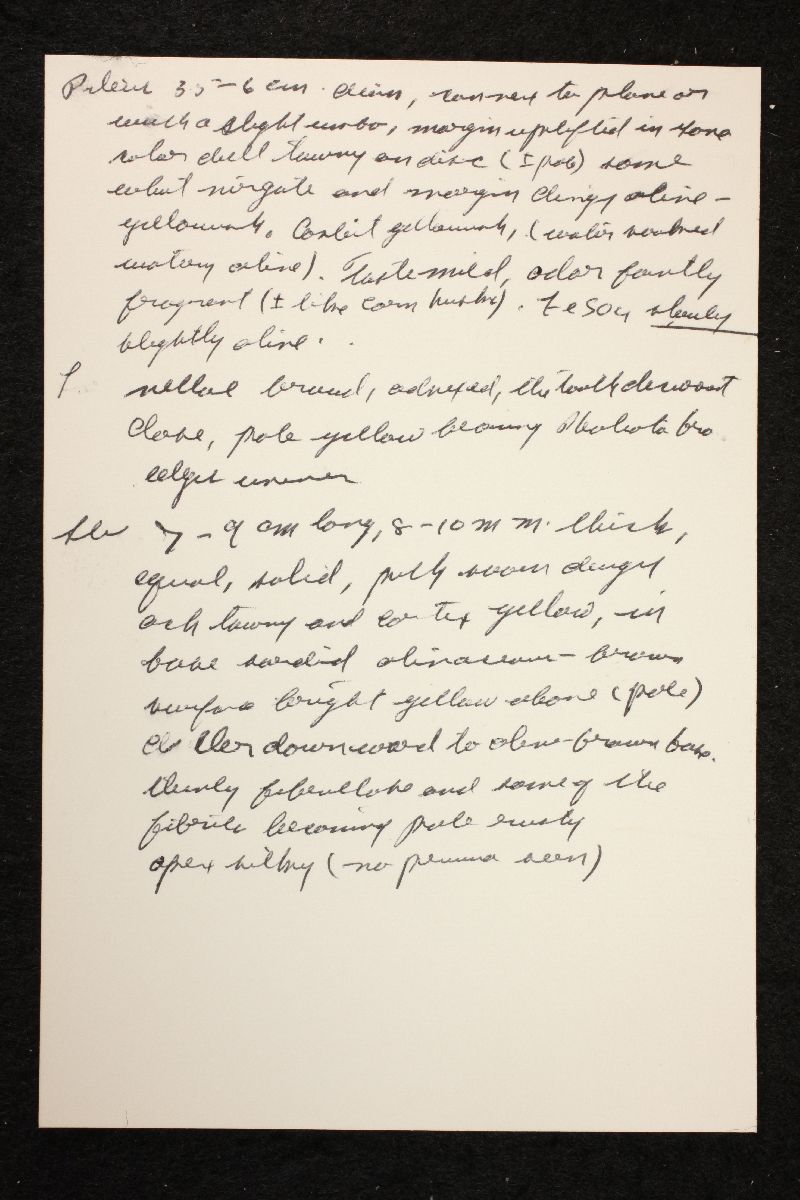 Pileus 3.5-6 cm diam, convex to plane or
with a slight umbo, margin uplifted in some
color dull tawny on disc (± pale) some
what virgate and margin dingy olive-
yellowish. Context yellowish, (water soaked
watery olive). Taste mild, odor faintly
fragrant (± like corn husks). FeSO4 slowly
slightly olive.
broad, adnexed, tooth decurrent
close, pale yellow becoming
edges uneven
Ste 7-9 cm long, 8-10 mm. thick,
equal, solid, pith soon dingy
och tawny and cortex yellow, in
base sordid olivaceous-brown
surface bright yellow above (pale)
downward to olive-brown base.
thinly fibrillose and some of the
fibrils becoming pale rusty
apex silky (no seen)